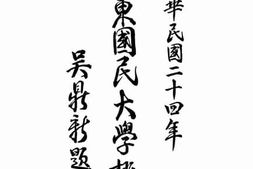 華民國二十四年
東國民大學
吳鼎新題